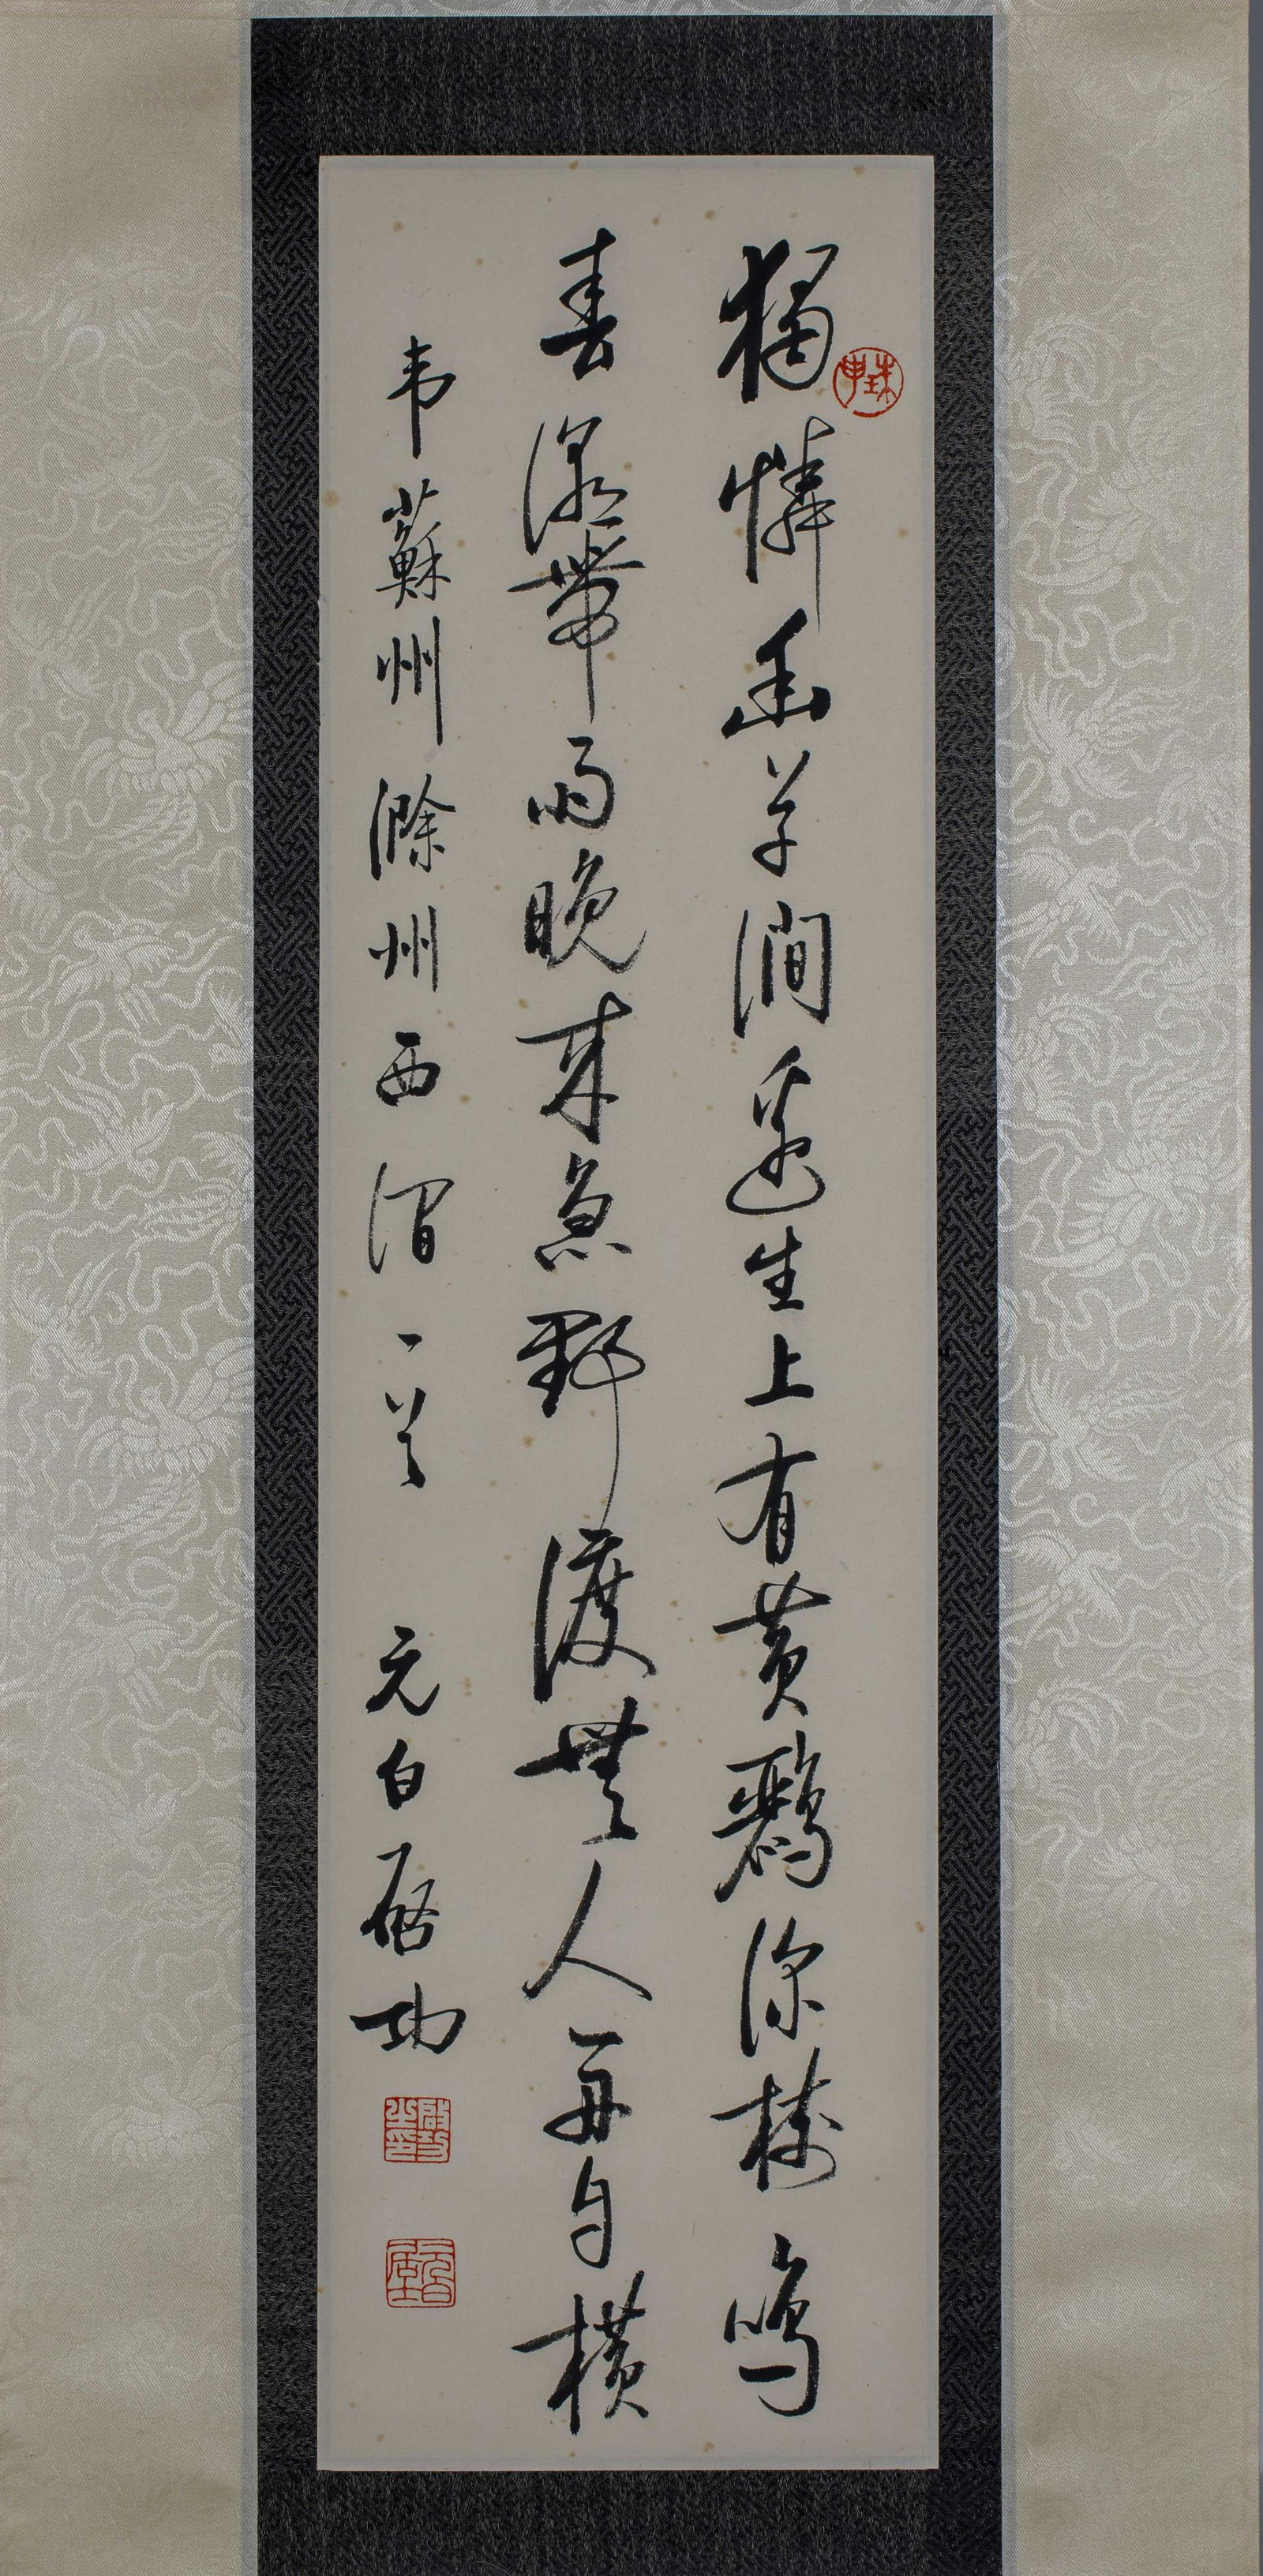 獨憐幽草澗邊生上有黃鸝深樹鳴
春潮帶雨晚來急野渡無人舟自橫
韦蘇州滁州西澗一首 元白啓功
珠申
啟功之印